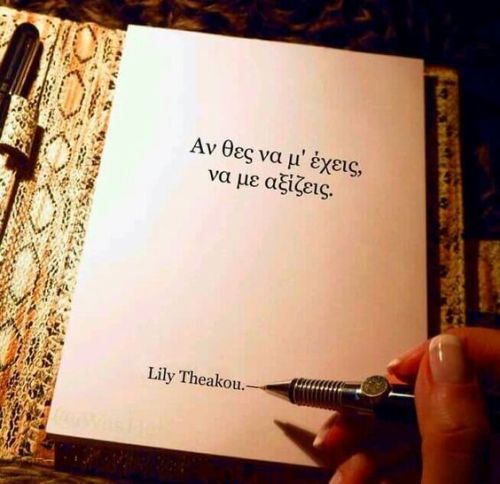 Αν θες να μ' έχεις,
να με αξίζεις.
Lily Theakou.